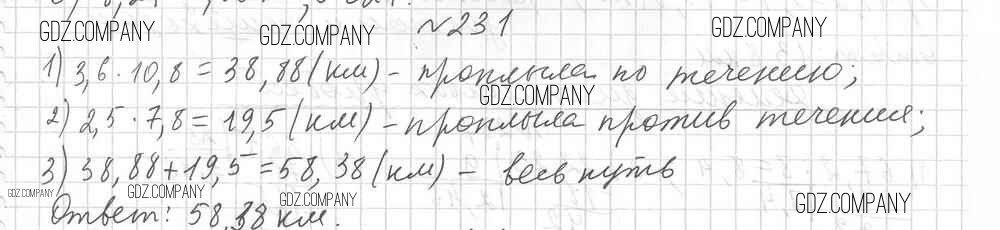 №231
GDZ.COMPANY GDZ.COMPANY GDZ.COMPANY
1) 3,6 · 10,8 = 38,88 (км) - проплыла по течению;
GDZ.COMPANY
2) 2,5 · 7,8 = 19,5 (км) - проплыла против течения;
3) 38,88 + 19,5 = 58,38 (км) - весь путь
GDZ.COMPANY GDZ.COMPANY GDZ.COMPANY GDZ.COMPANY
Ответ: 58,38 км.